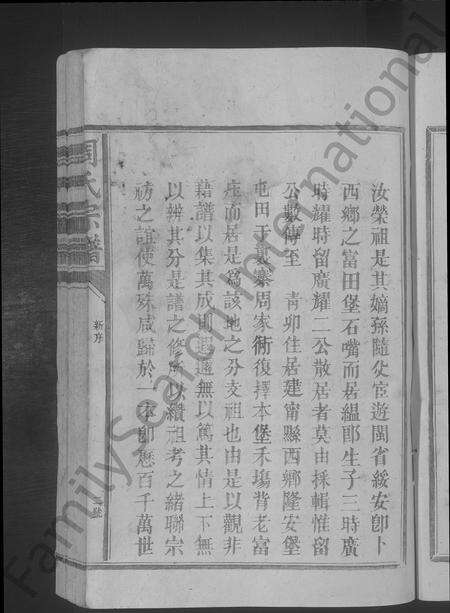 汝榮祖是其嫡孫隨父宦遊閩省綏安卽卜
西鄉之富田堡石嘴而居縕郎生子三時廣
時耀時留廣耀二公散居者莫由採輯惟留
公數傳至 青卯住居建甯縣西鄉隆安堡
屯田于 寨周家衕復擇本堡禾塲背老富
庄而居是爲該地之分支祖也由是以觀非
藉譜以集其成則遐邇無以篤其情上下無
以辨其分是譜之修所以纘祖考之緒聯宗
之誼使萬殊咸歸於一本卽歷百千萬世
周氏宗譜
新序
號
FamilySearch International